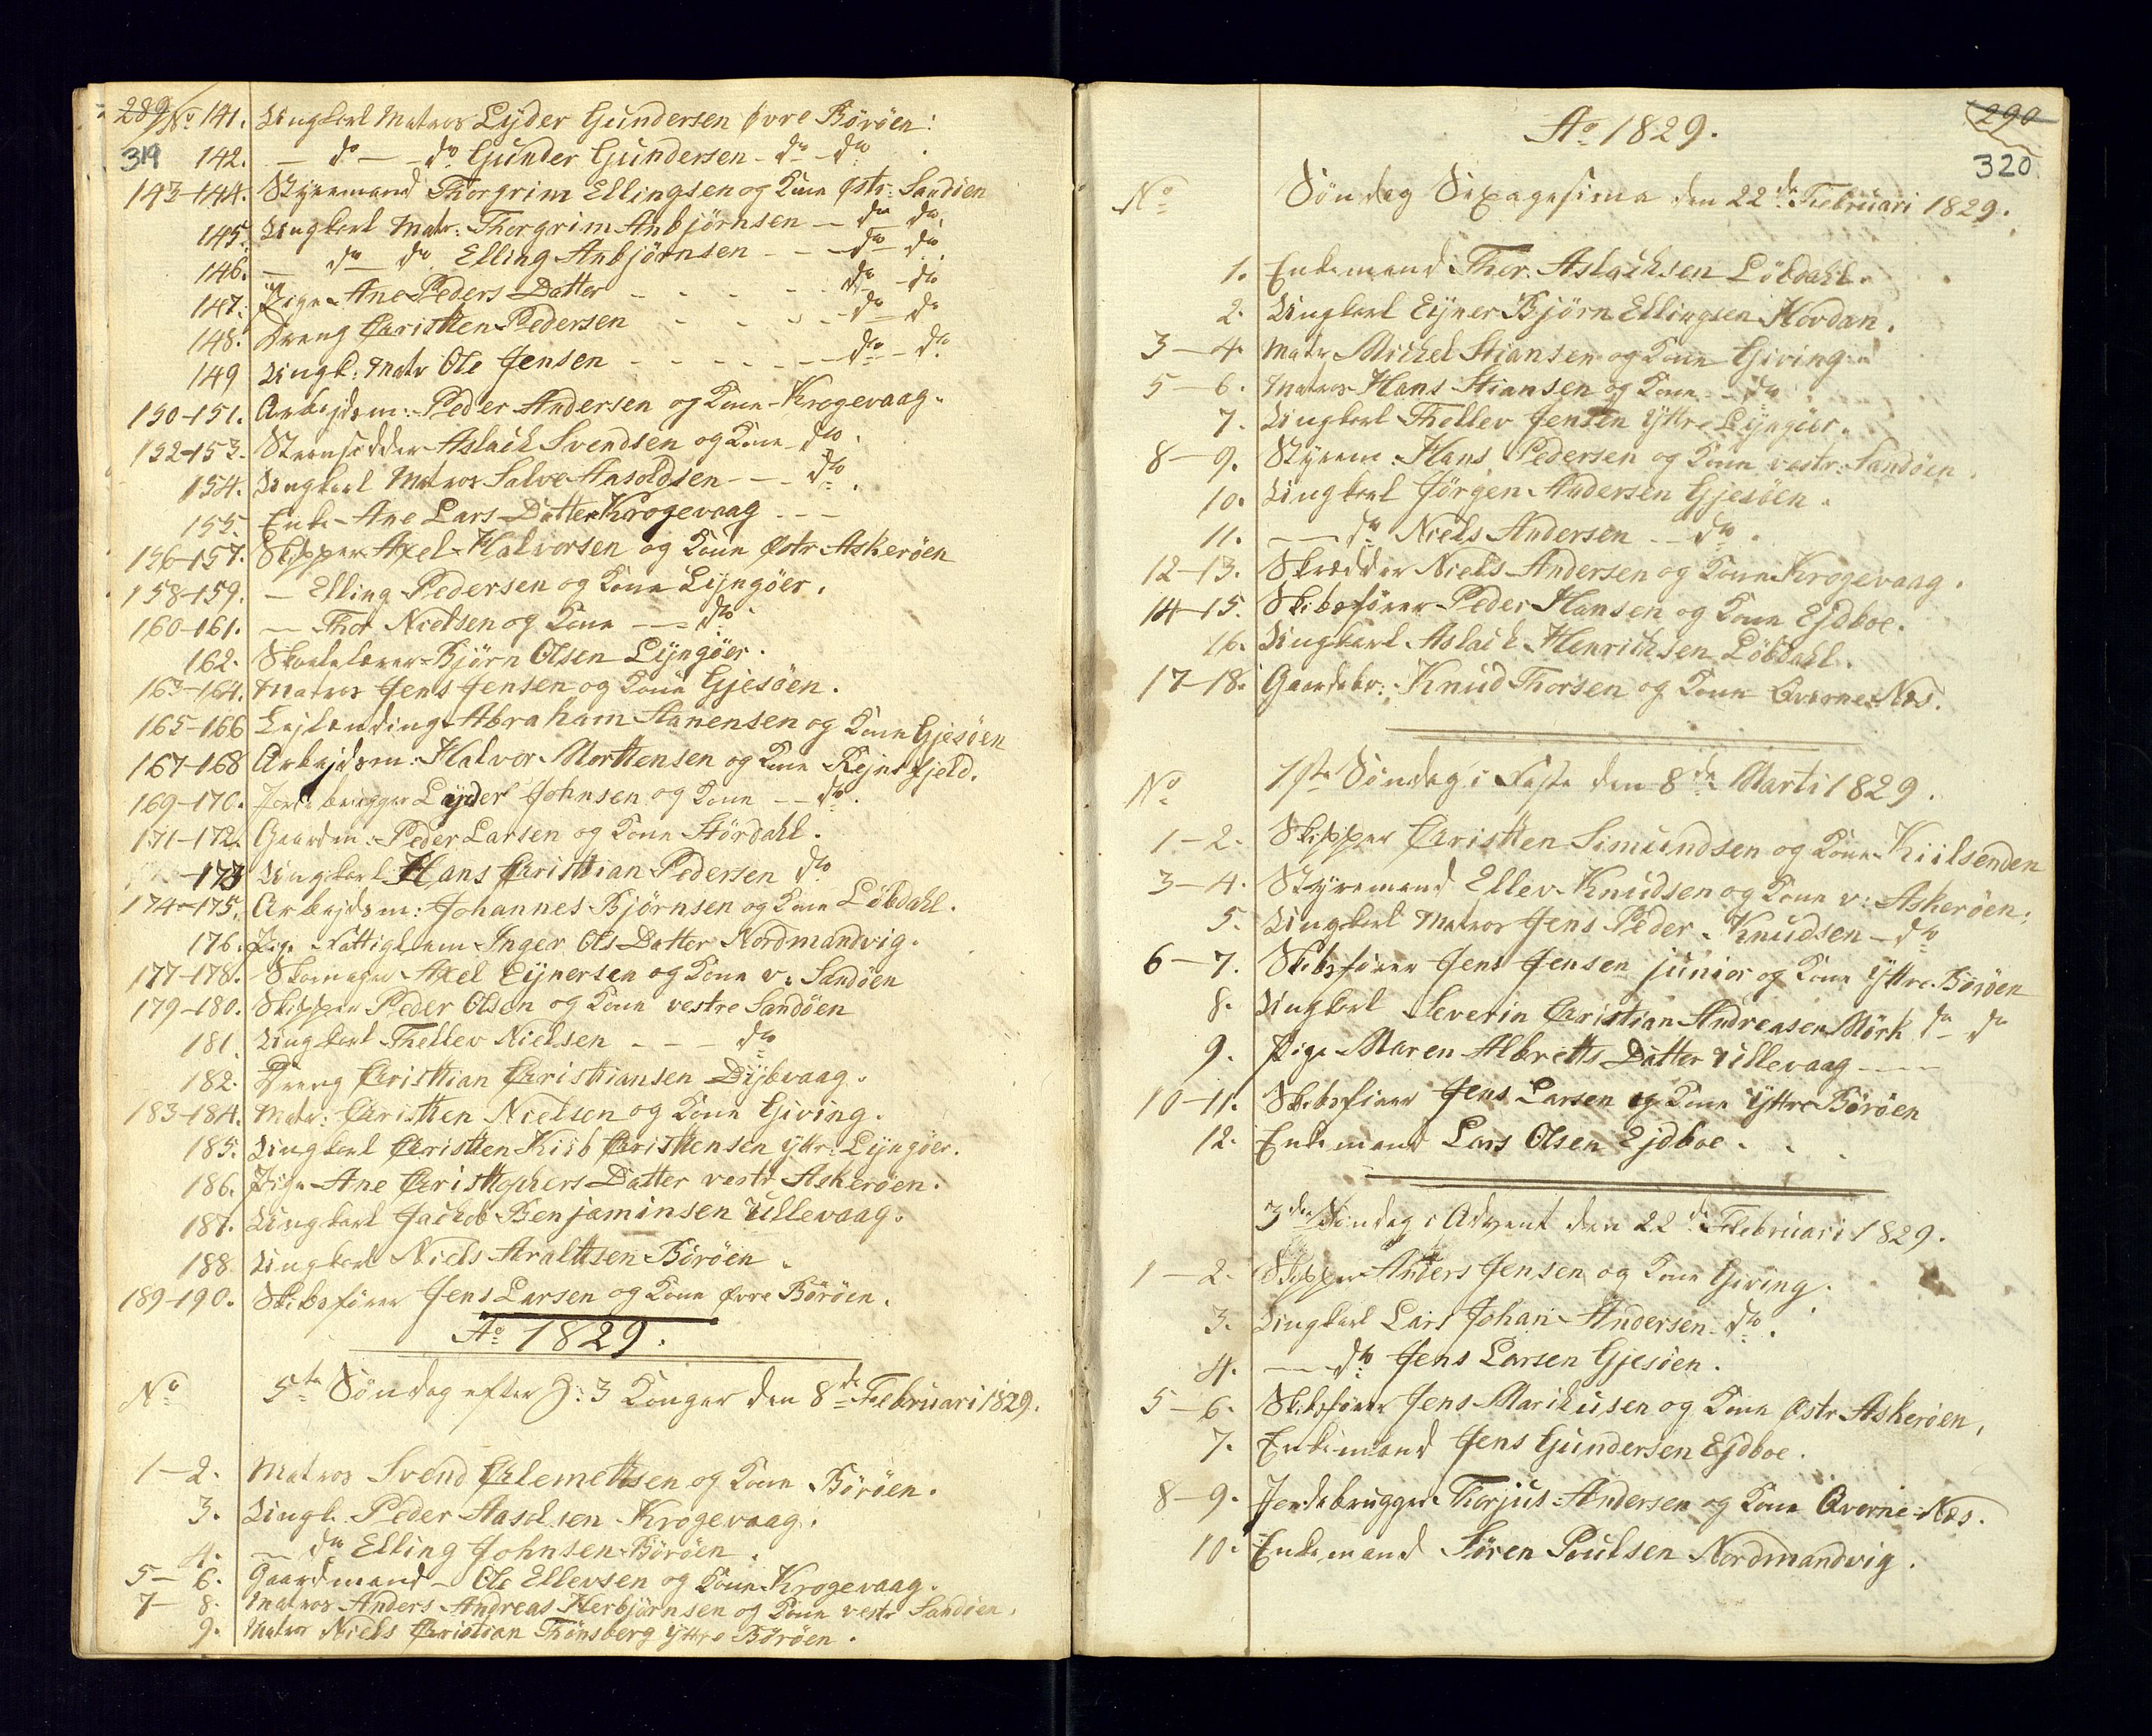 289 No 141. Ungkarl Matros Lyder Gundersen Øvre Böröen:
319 142. — do — do Gunder Gundersen - do - do
143-144. Styremand Thorgrim Ellingsen og Kone Østr: Sandöen
145. Ungkarl Matr: Thorgrim Anbjörnsen — do do
146. — do do Elling Anbjörnsen - - do - do
147. Pige Ane Peders Datter - - - - do - do
148. Dreng Christen Pedersen - - - - do - do
149 Ungk: Matr Ole Jensen - - - - - do - do
150-151. Arbejdsm: Peder Andersen og Kone Krogevaag.
152-153. Aslach Svendsen og Kone do.
154. Ungkarl Matros Salve Aasoldsen - - - do.
155. Enke Ane Lars Datter Krogevaag - - -
156-157. Skipper Axel Halvorsen og Kone Østr Askeröen
158-159. — Elling Pedersen og Kone Lyngöer.
160-161. — Thor Nielsen og Kone - - - do
162. Skolelærer Björn Olsen Lyngöer.
163-164. Matros Jens Jensen og Kone Gjesöen.
165-166 Lejlending Abraham Aanensen og Kone Gjesöen
167-168 Arbejdsm: Halvor Morttensen og Kone Rejnsfjeld.
169-170. Jordbrugger Lyder Johnsen og Kone - - do.
171-172. Gaardm: Peder Larsen og Kone Stördahl.
173 Ungkarl Hans Christian Pedersen do
174-175. Arbejdsm: Johannes Björnsen og Kone Löbdahl.
176. Pige Fattiglem Inger Ols Datter Nordmandvig.
177-178. Skomager Axel Eynersen og Kone v: Sandöen
179-180. Skipper Peder Olsen og Kone vestre Sandöen
181. Ungkarl Thellev Nielsen - - - do
182. Dreng Christian Christiansen Dybvaag.
183-184. Matr: Christen Nielsen og Kone Giving.
185. Ungkarl Christen Kiib Christensen Yttr: Lyngöer.
186. Pige Ane Christophers Datter vestr Askeröen.
187. Ungkarl Jachob Benjaminsen Ullevaag.
188. Ungkarl Niels Araltsen Böröen.
189-190. Skibsförer Jens Larsen og Kone Øvre Böröen.
Ao 1829.
No 5te Söndag efter H: 3 Konger den 8de Februari 1829.
1-2. Matros Svend Clemettsen og Kone Böröen.
3. Ungk. Peder Aasolsen Krogevaag.
4. — do Elling Johnsen Böröen.
5-6. Gaardmand Ole Ellevsen og Kone Krogevaag.
7-8. Matros Anders Andreas Herbjörnsen og Kone vestr Sandöen.
9. Matros Niels Christian Thönsberg Yttre Böröen.
290
320
Ao 1829.
No Söndag Sexagesima den 22de Februari 1829.
1. Enkemand Thor Aslachsen Löbdahl.
2. Ungkarl Eyner Björn Ellingsen Hordan.
3-4. Matr Michel Stiansen og Kone Giving.
5-6. Matros Hans Stiansen og Kone - do
7. Ungkarl Thellev Jensen Yttre Lyngöer.
8-9. Styrem: Hans Pedersen og Kone vestr: Sandöen.
10. Ungkarl Jörgen Andersen Gjesöen.
11. — do Niels Andersen - - do.
12-13. Skredder Niels Andersen og Kone Krogevaag.
14-15. Skibsförer Peder Hansen og Kone Ejdboe.
16. Ungkarl Aslach Henrichsen Löbdahl.
17-18. Gaardbr: Knud Thorsen og Kone Qværne Næs.
No 1ste Söndag i Faste den 8de Marti 1829.
1-2. Skipper Christen Simundsen og Kone Kiilsenden
3-4. Styremand Ellev Knudsen og Kone v: Askeröen:
5. Ungkarl Matros Jens Peder Knudsen - do
6-7. Skibsförer Jens Jensen junior og Kone Yttre Böröen
8. Ungkarl Severin Christian Andreasen Mörk do do
9. Pige Maren Albretts Datter Ullevaag - - -
10-11. Skibsförer Jens Larsen og Kone Yttre Böröen
12. Enkemand Lars Olsen Ejdboe.
3die Söndag i Advent den 22de Februari 1829.
1-2. Skipper Anders Jensen og Kone Giving.
3. Ungkarl Lars Johan Andersen - do.
4. — do Jens Larsen Gjesöen.
5-6. Skibsförer Jens Marikusen og Kone Østr Askeröen,
7. Enkemand Jens Gundersen Ejdboe.
8-9. Jordebrugger Thorjus Andersen og Kone Qværne Næs.
10. Enkemand Sören Poulsen Nordmandvig.